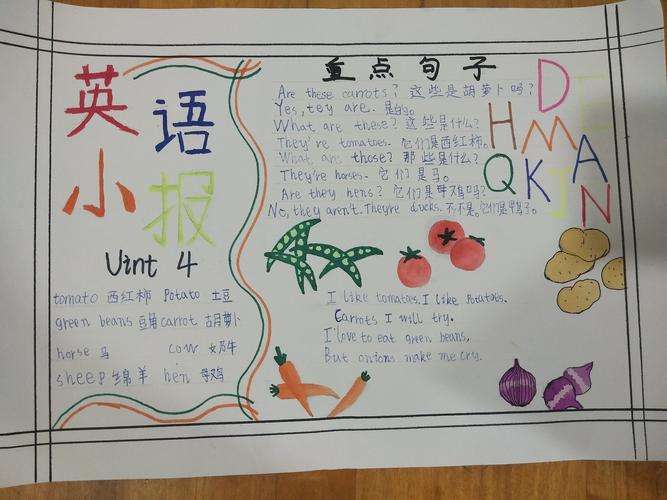 英语
小报
Uint 4
tomato 西红柿 Potato 土豆
green beans 豆角 carrot 胡萝卜
horse 马 cow 奶牛
sheep 绵羊 hen 母鸡
重点句子
Are these carrots? 这些是胡萝卜吗?
Yes, tey are. 是的。
What are these? 这些是什么?
They're tomatoes. 它们是西红柿。
What are those? 那些是什么?
They're horses. 它们是马。
Are they hens? 它们是母鸡吗?
No, they aren't. They're ducks. 不,不是。它们是鸭子。
D
H M A
Q K J N
I like tomatos. I like Potatois.
Carrots I will try.
I'love to eat green beans,
But onions make me cry.